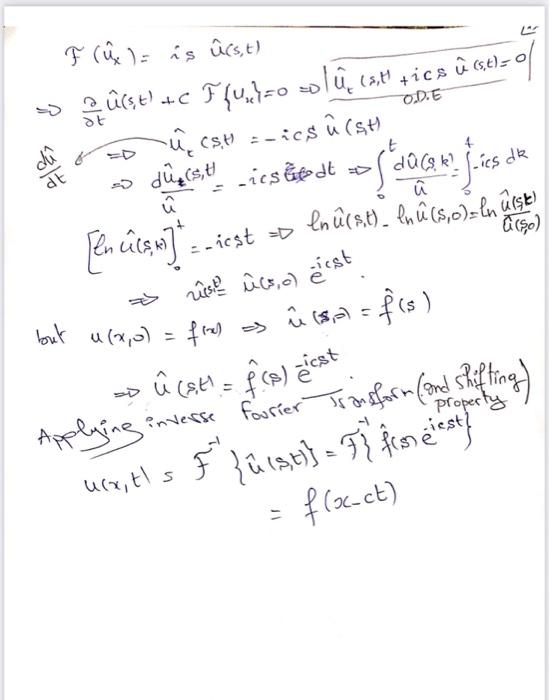 F(û_x) = is û(s,t)
⇒ ∂/∂t û(s,t) + c F{u_x} = 0 ⇒ û_t(s,t) + ics û(s,t) = 0
O.D.E
dû/dt ⇒ û_t(s,t) = -ics û(s,t)
⇒ dû(s,t)/û = -ics dt ⇒ ∫₀ᵗ dû(s,k)/û = ∫₀ᵗ -ics dk
[ln û(s,k)]₀ᵗ = -icst ⇒ ln û(s,t) - ln û(s,0) = ln û(s,t)/û(s,0)
⇒ û(s,t) = û(s,0) e^{-icst}.
but u(x,0) = f(x) ⇒ û(s,0) = f̂(s)
⇒ û(s,t) = f̂(s) e^{-icst}.
Applying inverse Fourier Transform (and shifting property)
u(x,t) = F⁻¹{û(s,t)} = F⁻¹{f̂(s) e^{-icst}}
= f(x-ct)